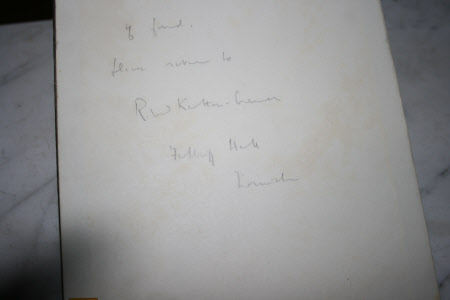 If found.
please return to
R W Ketton-Cremer
Felbrigg Hall
Norwich